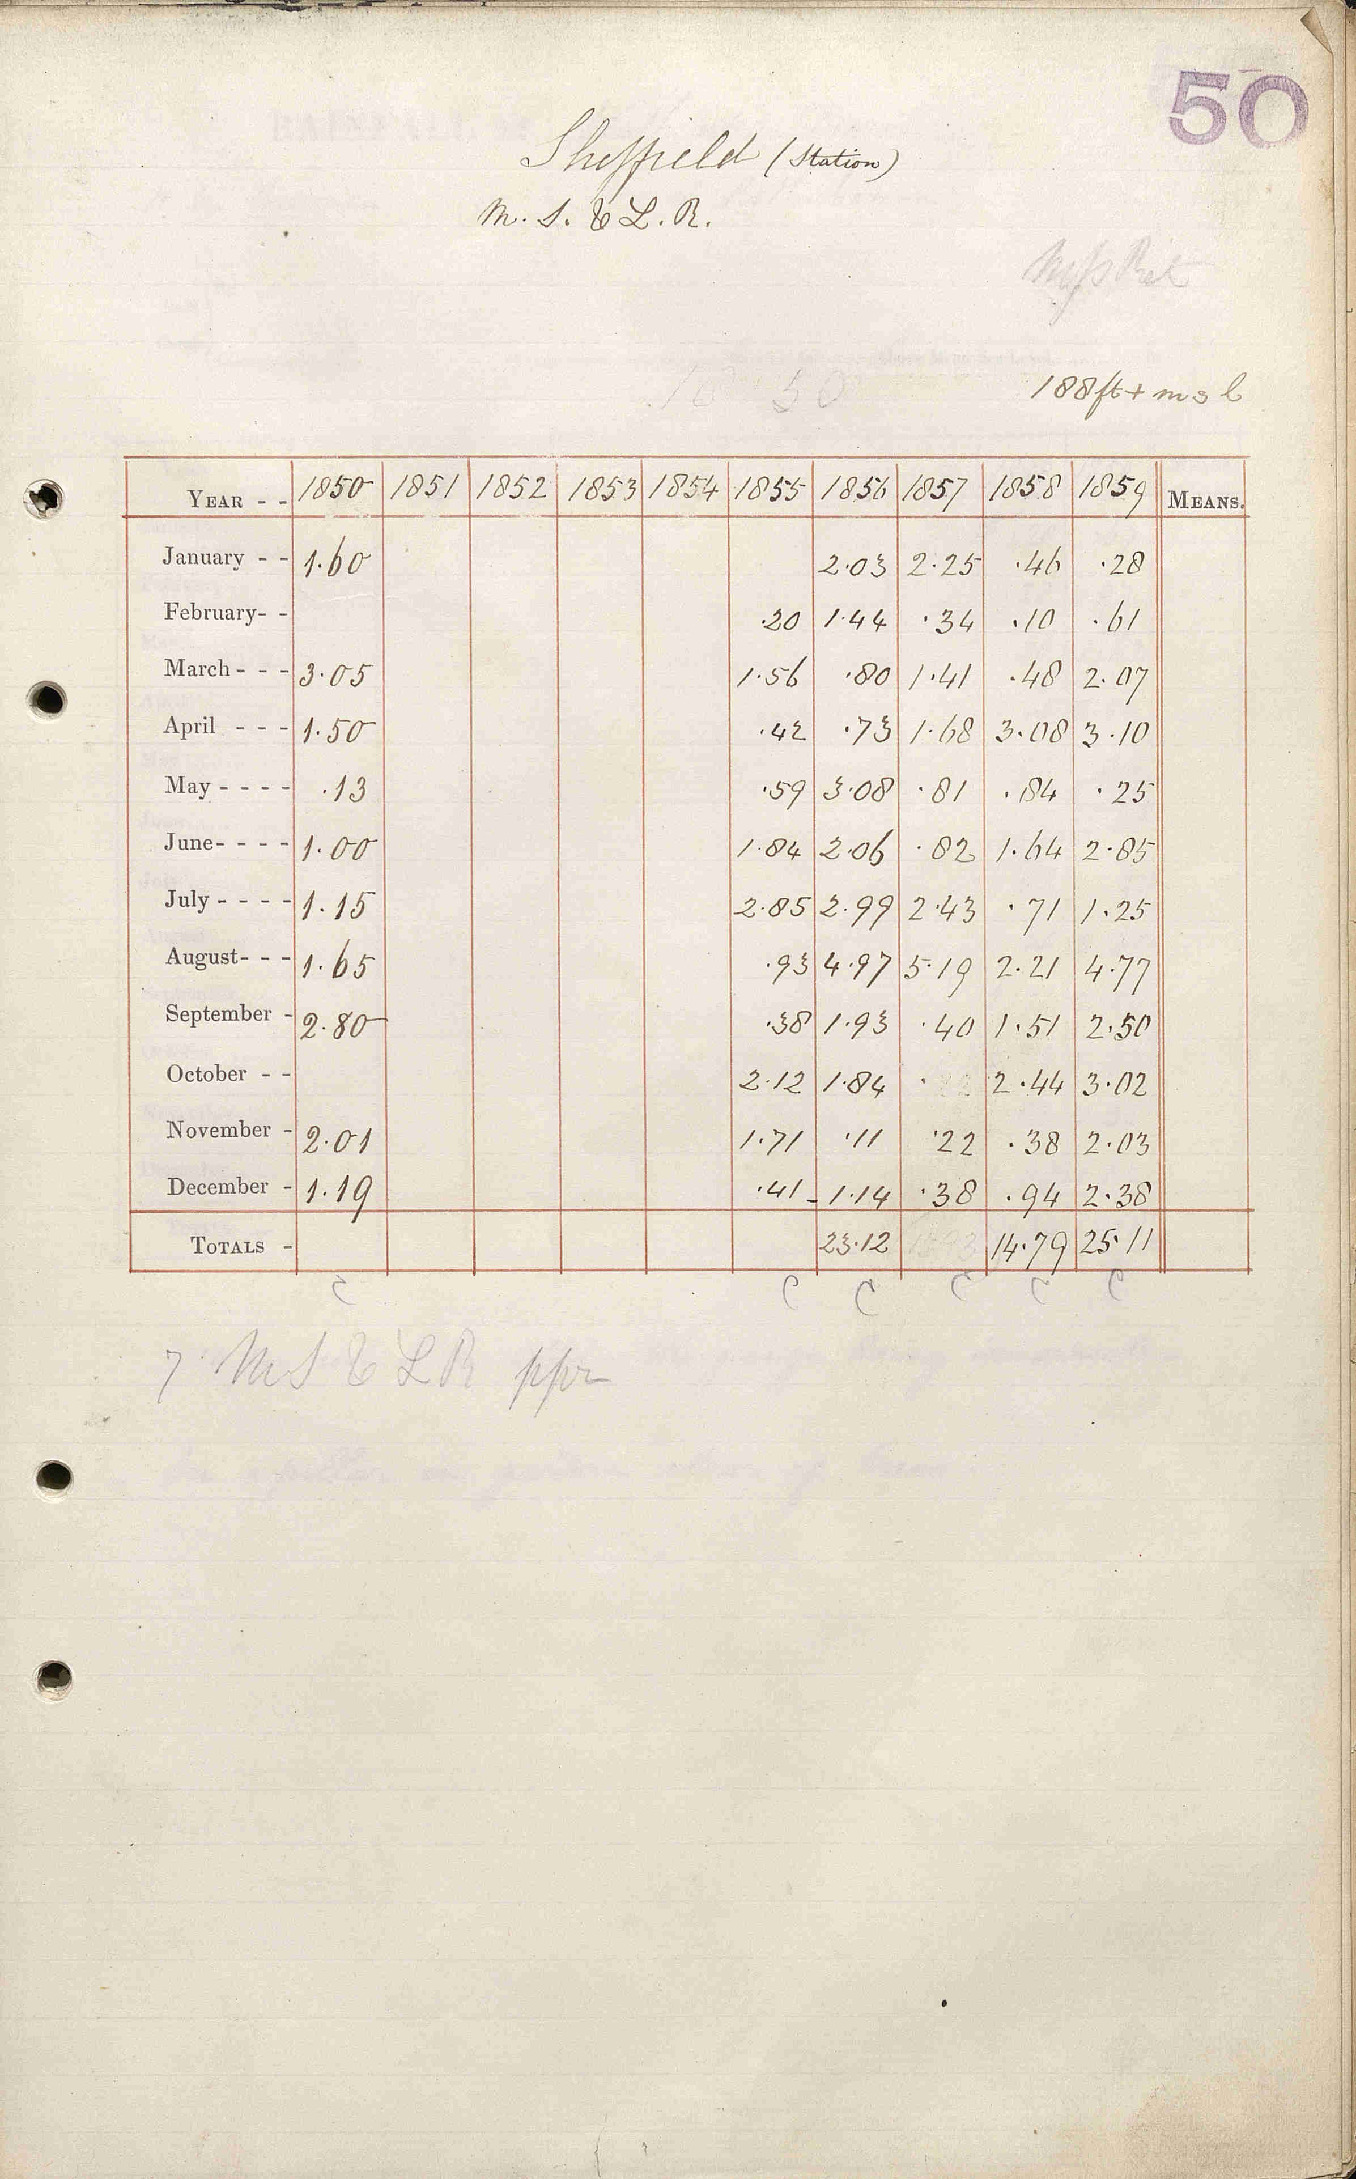 50
Sheffield (Station)
M. S. & L. R.
188ft + m s l
YEAR - - 1850 1851 1852 1853 1854 1855 1856 1857 1858 1859 MEANS.
January - - 1.60 2.03 2.25 .46 .28
February - - .20 1.44 .34 .10 .61
March - - - 3.05 1.56 .80 1.41 .48 2.07
April - - - 1.50 .42 .73 1.68 3.08 3.10
May - - - - .13 .59 3.08 .81 .84 .25
June - - - - 1.00 1.84 2.06 .82 1.64 2.85
July - - - - 1.15 2.85 2.99 2.43 .71 1.25
August - - - 1.65 .93 4.97 5.19 2.21 4.77
September - 2.80 .38 1.93 .40 1.51 2.50
October - - 2.12 1.84 2.44 3.02
November - 2.01 1.71 .11 .22 .38 2.03
December - 1.19 .41 1.14 .38 .94 2.38
TOTALS - 23.12 14.79 25.11
C C C C C C
7 M S & L R ppr